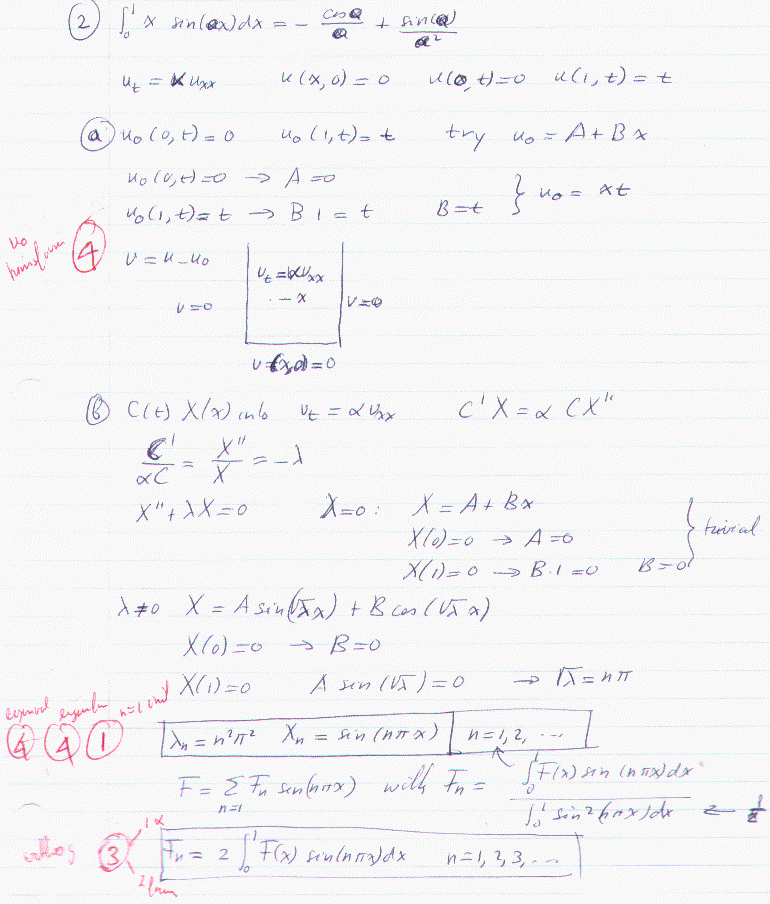 ② ∫₀¹ x sin(ax)dx = − cos a / a + sin(a) / a²
u_t = α u_xx u(x,0) = 0 u(0,t) = 0 u(1,t) = t
ⓐ u₀(0,t) = 0 u₀(1,t) = t try u₀ = A + Bx
u₀(0,t) = 0 → A = 0
u₀(1,t) = t → B 1 = t B = t } u₀ = xt
u₀
④ v = u − u₀
v_t = αv_xx
− x
v = 0 v = 0
v(x,0) = 0
ⓑ C(t) X(x) into v_t = αv_xx C' X = α C X''
C' / αC = X'' / X = −λ
X'' + λX = 0 λ = 0: X = A + Bx
X(0) = 0 → A = 0
X(1) = 0 → B·1 = 0 B = 0 } trivial
λ ≠ 0 X = A sin(√λ x) + B cos(√λ x)
X(0) = 0 → B = 0
X(1) = 0 A sin(√λ) = 0 → √λ = nπ
④ ④ ①
λₙ = n²π² Xₙ = sin(nπx) n = 1, 2, ...
F = Σ_{n=1} Fₙ sin(nπx) with Fₙ = ∫₀¹ F(x) sin(nπx)dx / ∫₀¹ sin²(nπx)dx ← 1/2
③ Fₙ = 2 ∫₀¹ F(x) sin(nπx)dx n = 1, 2, 3, ...